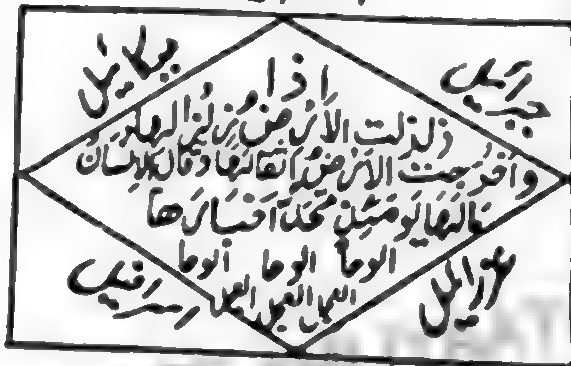 جبرائیل
میکائیل
اذا
زلزلت الارض زلزالها و
واخرجت الارض اثقالها وقال الانسان
مالها یومئذ تحدث اخبارها
الوحا الوحا الوحا
العجل العجل العجل
عزرائیل
اسرافیل